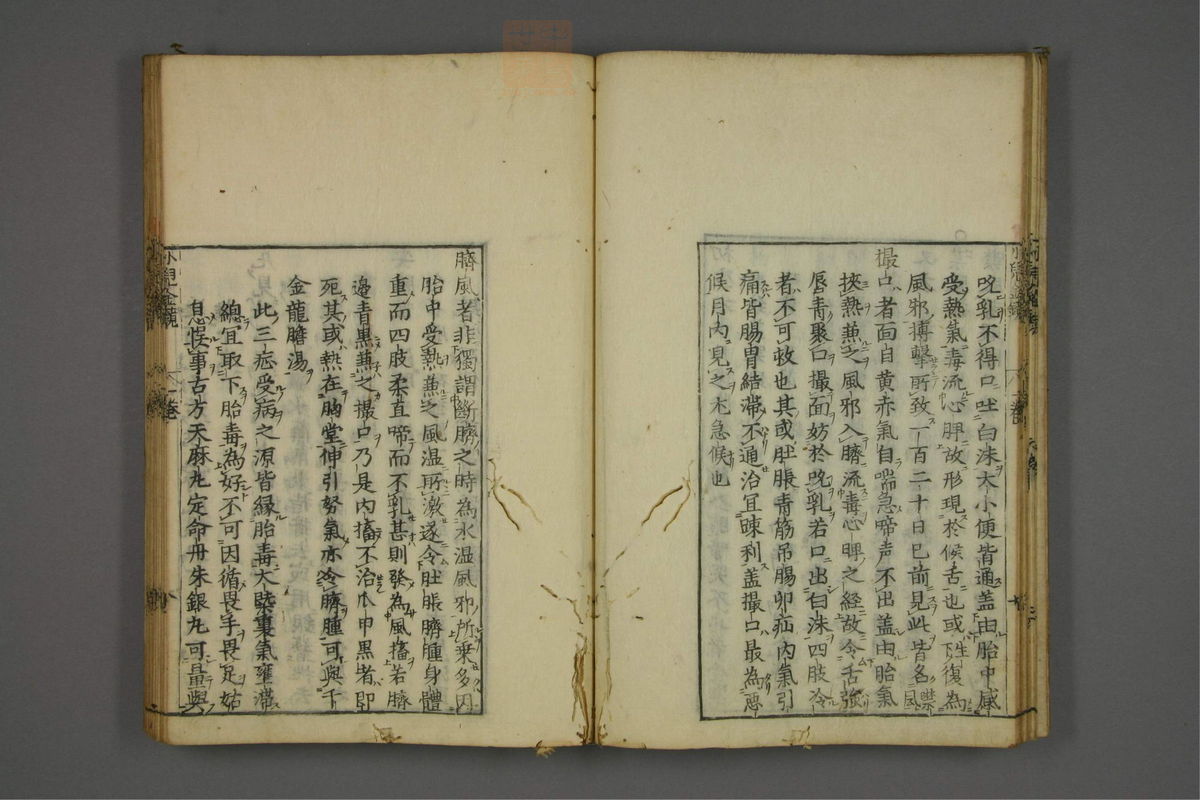 吮乳不得口吐白沫大小便皆通盖由胎中感
受熱氣毒流心脾故形現於候舌也或生下復為
風邪摶擊所致一百二十日已前見此皆名噤風
撮口者面目黄赤氣自喘急啼声不出盖由胎氣
挾熱兼之風邪入臍流毒心脾之経故令舌強
唇青聚口撮面妨於吮乳若口出白沫四肢冷
者不可救也其或肚脹青筋吊腸卵疝内氣引
痛皆腸胃結滞不通治宜踈利盖撮口最為悪
候月内見之尤急候也
臍風者非獨謂断臍之時為水温風邪所乗多因
胎中受熱兼之風温所激遂令肚脹臍腫身體
重而四肢柔直啼而不乳甚則發為風搐若臍
邉青黒兼之撮口乃是内搐不治爪甲黒者即
死其或熱在胸堂伸引努氣亦令臍腫可與千
金龍膽湯
此三症受病之源皆縁胎毒大膓裏氣壅滞
總宜取下胎毒為好不可因循畏手畏足姑
息悮事古方天麻丸定命丹朱銀丸可量與